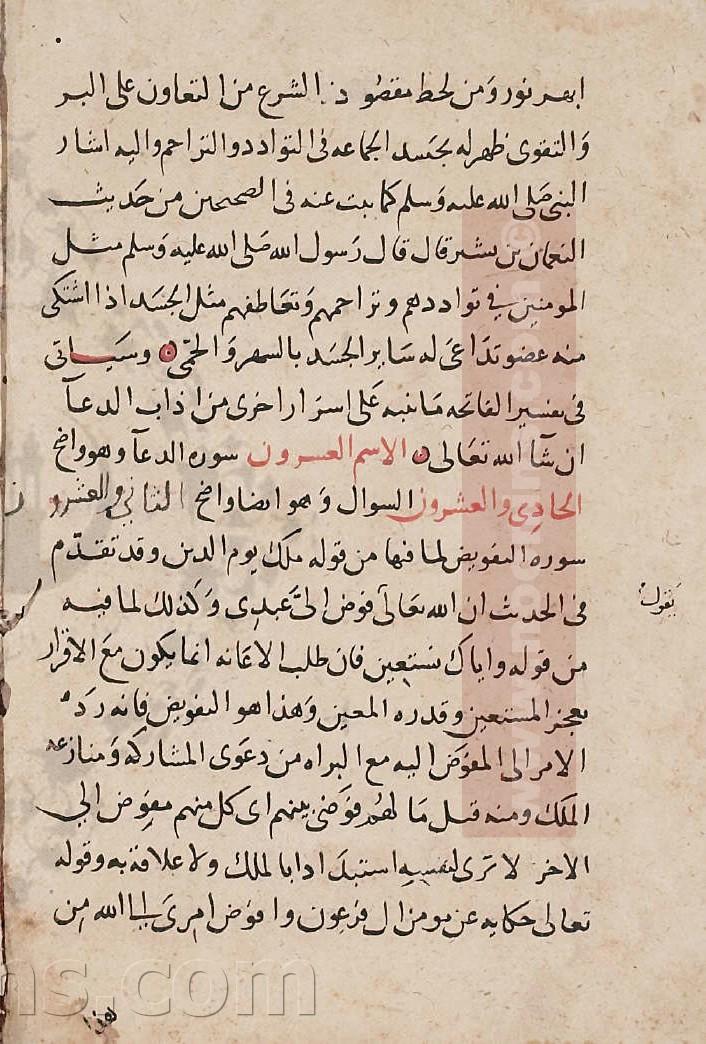 ابهر نور ومن لحظ مقصود الشرع من التعاون على البر
والتقوى ظهر له بجسد الجماعه فى التوادد والتراحم واليه اشار
النبى صلى الله عليه وسلم كما ثبت عنه فى الصحيحين من حديث
النعمان بن بشير قال قال رسول الله صلى الله عليه وسلم مثل
المومنين في تواددهم وتراحمهم وتعاطفهم مثل الجسد اذا اشتكى
منه عضو تداعى له ساير الجسد بالسهر والحمى وسياتى
فى تفسير الفاتحه ما ننبه على اسرار اخرى من اداب الدعآ
ان شآ الله تعالى الاسم العشرون سوره الدعآ وهو واضح
الحادى والعشرون السوال وهو ايضا واضح الثاني والعشرون
سوره التفويض لما فيها من قوله ملك يوم الدين وقد تقدّم
فى الحديث ان الله تعالى فوض الىّ عبدى وكذلك لما فيه
يقول
من قوله واياك نستعين فان طلب الاعانه انما يكون مع الاقرار
بعجز المستعين وقدره المعين وهذا هو التفويض فانه رد
الامر الى المفوض اليه مع البراه من دعوى المشاركه ومنازعه
الملك ومنه قيل مالهم فوضى بينهم اى كل منهم مفوض الي
الاخر لا ترى لنفسه استبدادا بالملك ولا علاقة به وقوله
تعالى حكايه عن مومن ال فرعون وافوض امرى الى الله من
www.mocking.com©
ms.com